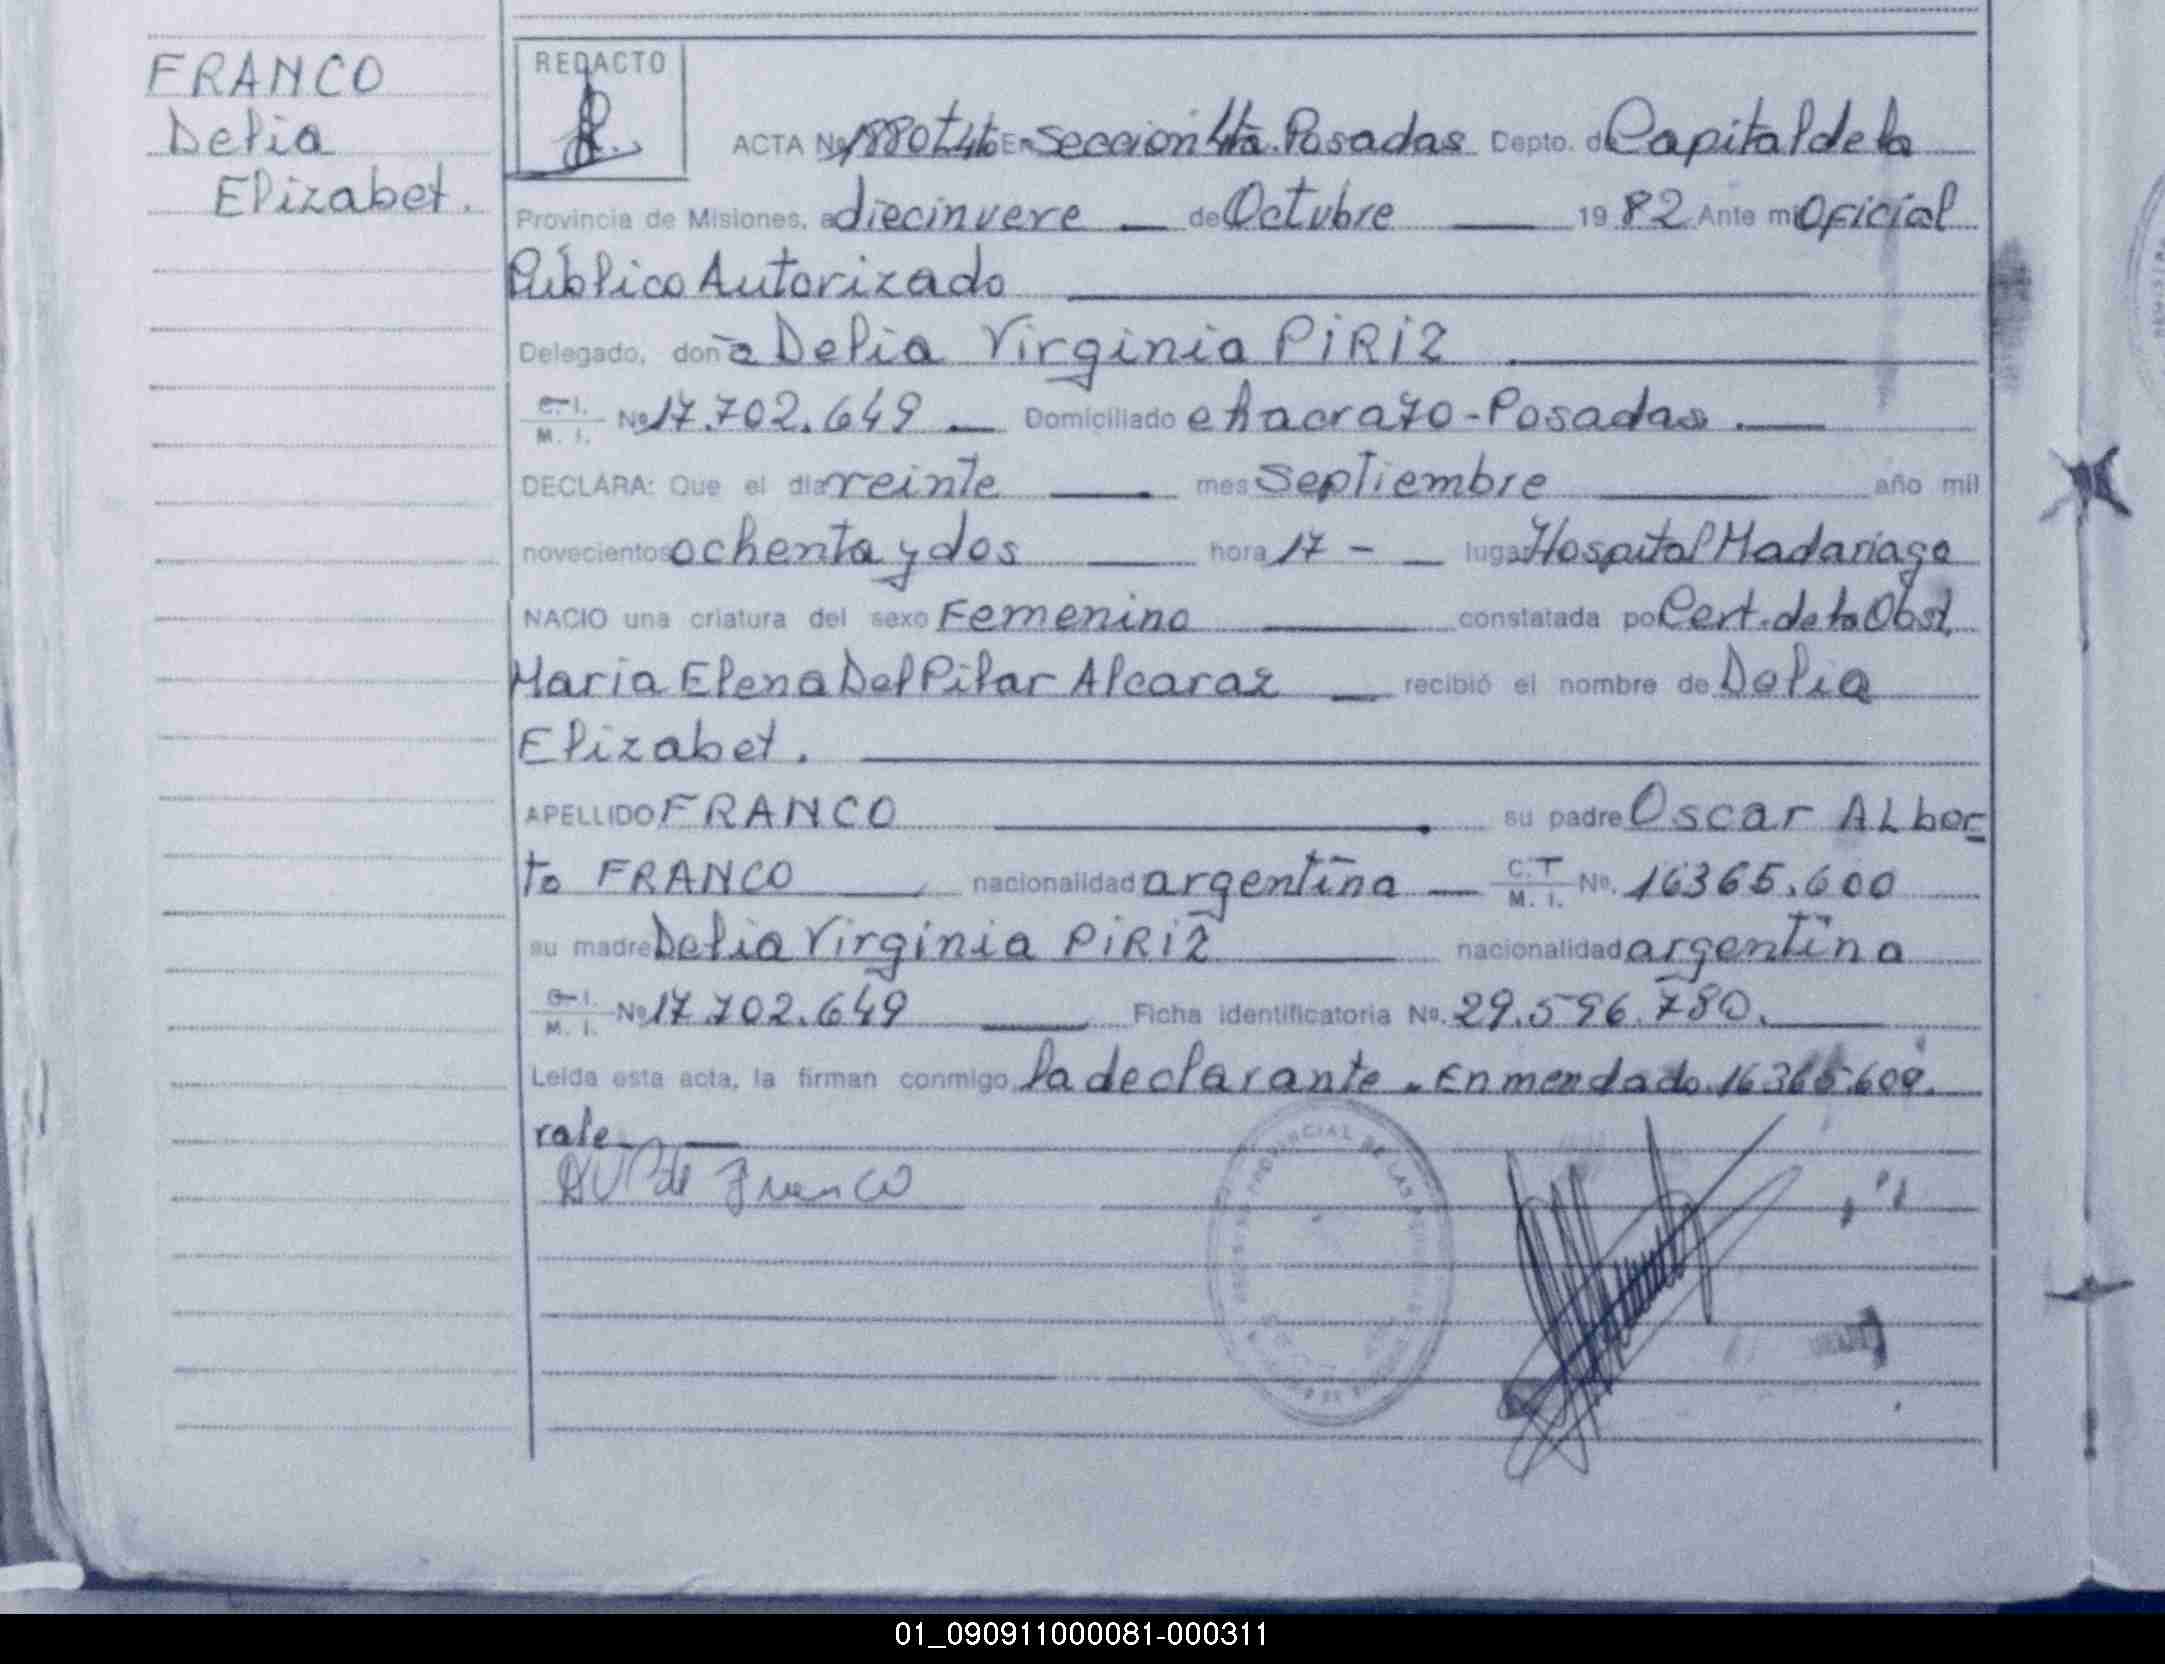 FRANCO
Delia
Elizabet.
REDACTO
ACTA Nº 1880 T4to En Seccion 4ta. Posadas Depto. d Capital de la
Provincia de Misiones, a diecinueve — de Octubre — 1982 Ante mi Oficial
Público Autorizado
Delegado, don a Delia Virginia PiRiz
C.I. M. I. Nº 17.702.649 — Domiciliado chacra 70 - Posadas. —
DECLARA: Que el dia veinte — mes Septiembre — año mil
novecientos ochenta y dos — hora 17 - — lugar Hospital Madariaga
NACIO una criatura del sexo Femenino — constatada por Cert. de la Obst.
Maria Elena Del Pilar Alcaraz — recibió el nombre de Delia
Elizabet. —
APELLIDO FRANCO — su padre Oscar ALber
to FRANCO — nacionalidad argentina — C.I. M. I. Nº. 16365.600
su madre Delia Virginia PiRiz — nacionalidad argentina
C.I. M. I. Nº 17.702.649 — Ficha identificatoria Nº. 29.596.780. —
Leida esta acta, la firman conmigo la declarante. Enmendado. 16365.600.
vale —
DVP de Franco
01_090911000081-000311